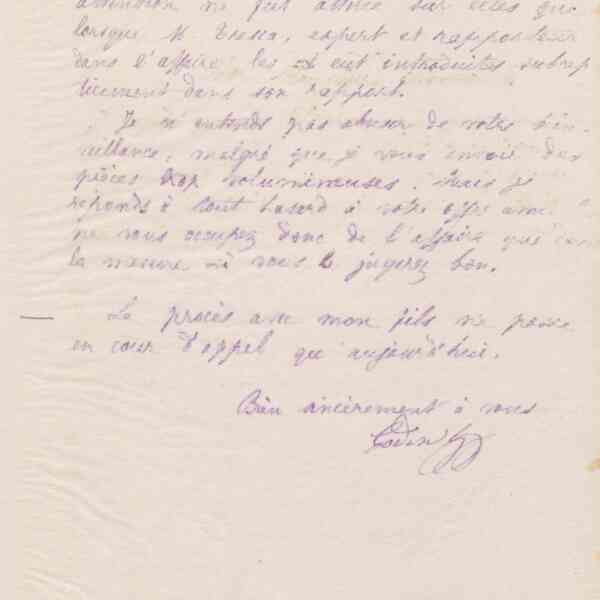 attention ne fut attirée sur elles que
lorsque M. Tresca, expert et rapporteur
dans l'affaire, les eut introduites subrep
ticement dans son rapport.
Je n'entends pas abuser de votre bien
veillance, malgré que je vous envoie des
pièces trop volumineuses. Mais je
réponds à tout hasard à votre offre
ne vous occupez donc de l'affaire que dans
la mesure où vous le jugerez bon.
Le procès avec mon fils ne passe
en cour d'appel qu'aujourd'hui.
Bien sincèrement à vous
Godin